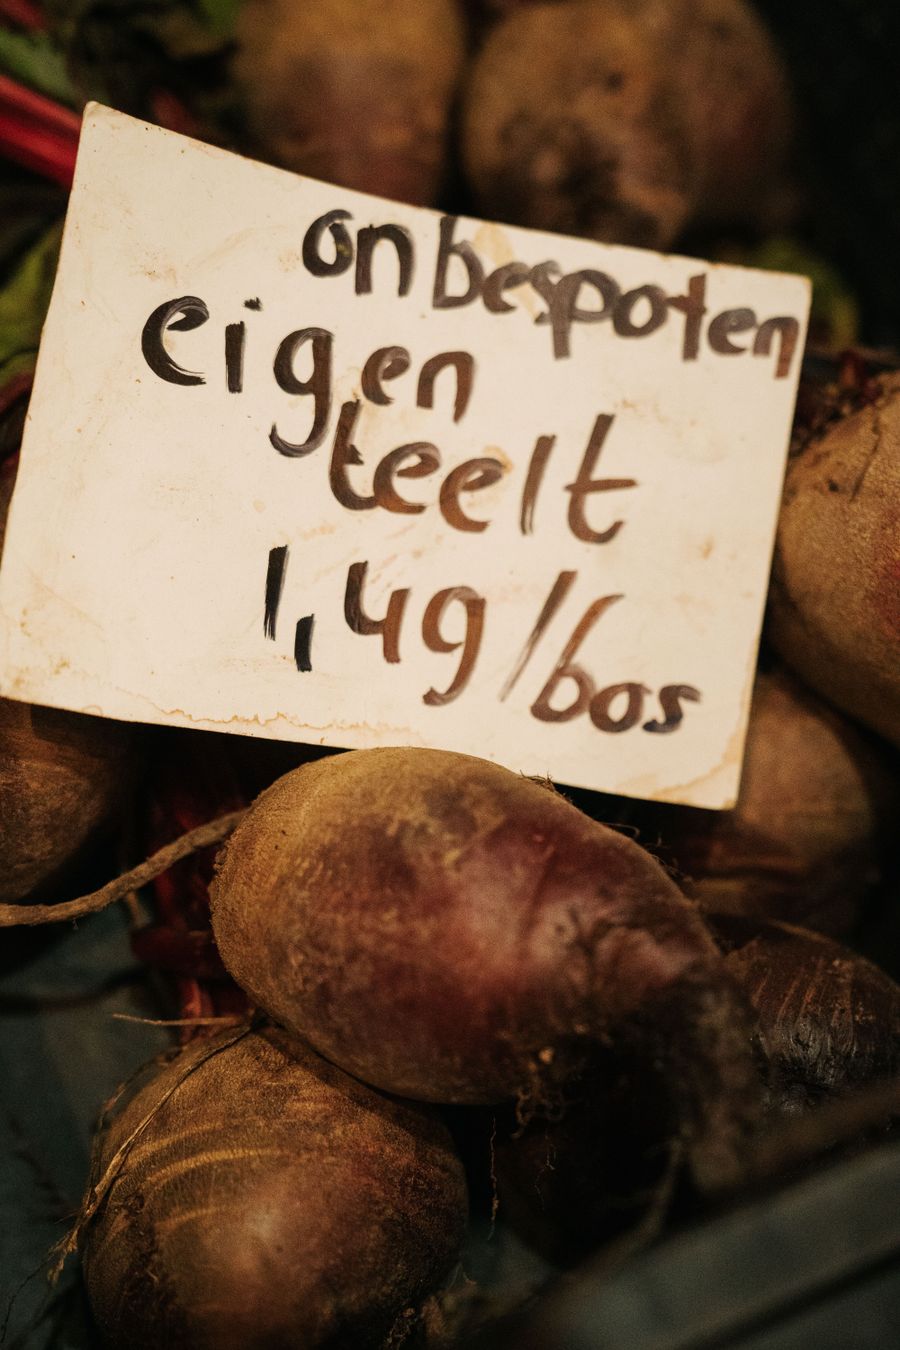 onbespoten
eigen
teelt
1,49/bos